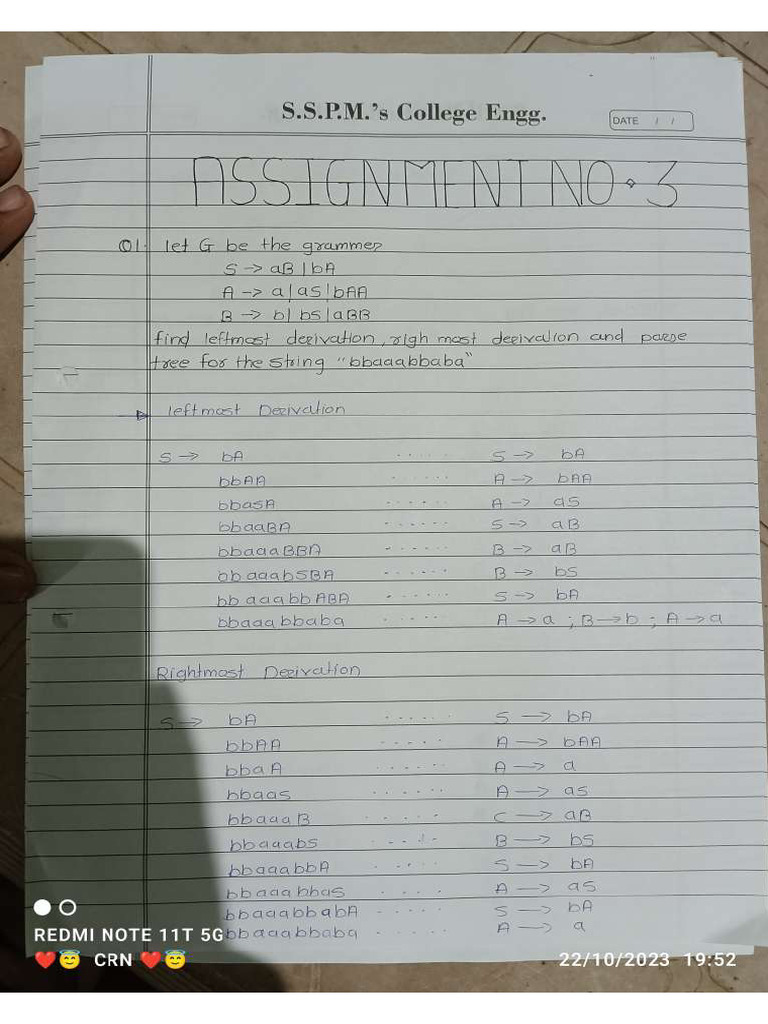 S.S.P.M.'s College Engg.
DATE / /
ASSIGNMENT NO. 3
Q1. let G be the grammer
S → aB | bA
A → a | aS | bAA
B → b | bS | aBB
find leftmost derivation, righ most derivation and parse
tree for the string "bbaaabbaba"
leftmost Derivation
S → bA ..... S → bA
bbAA ..... A → bAA
bbasA ...... A → aS
bbaaBA ...... S → aB
bbaaaBBA ...... B → aB
bbaaabSBA ...... B → bS
bbaaabbABA ...... S → bA
bbaaabbaba ..... A → a ; B → b ; A → a
Rightmost Derivation
S → bA ...... S → bA
bbAA ..... A → bAA
bbaA ...... A → a
bbaas ...... A → as
bbaaaB ..... C → aB
bbaaabs ..... B → bS
bbaaabbA ..... S → bA
bbaaabbas .... A → aS
bbaaabbabA ..... S → bA
bbaaabbaba ..... A → a
REDMI NOTE 11T 5G
❤️😇 CRN ❤️😇 22/10/2023 19:52